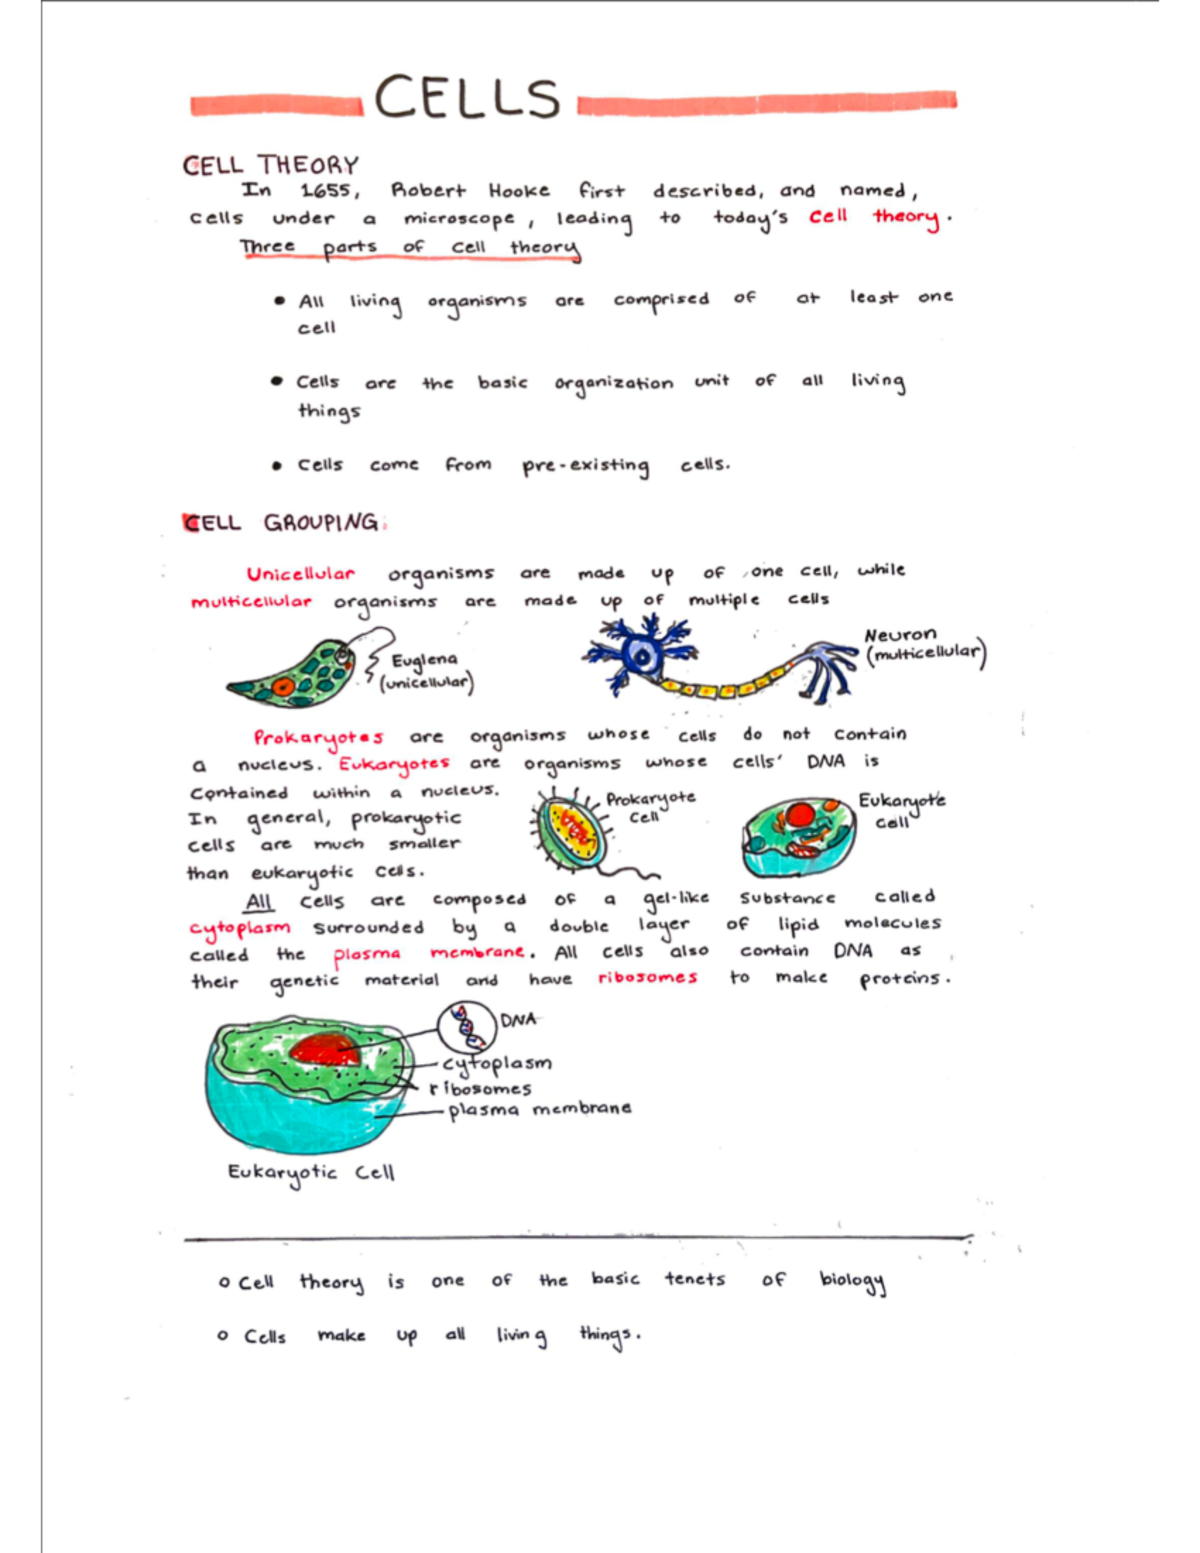 CELLS
CELL THEORY
In 1655, Robert Hooke first described, and named,
cells under a microscope, leading to today's cell theory.
Three parts of cell theory
• All living organisms are comprised of at least one
cell
• Cells are the basic organization unit of all living
things
• Cells come from pre-existing cells.
CELL GROUPING:
Unicellular organisms are made up of one cell, while
multicellular organisms are made up of multiple cells
Euglena
(unicellular)
Neuron
(multicellular)
Prokaryotes are organisms whose cells do not contain
a nucleus. Eukaryotes are organisms whose cells' DNA is
contained within a nucleus.
In general, prokaryotic
cells are much smaller
than eukaryotic cells.
Prokaryote
cell
Eukaryote
cell
All cells are composed of a gel-like substance called
cytoplasm surrounded by a double layer of lipid molecules
called the plasma membrane. All cells also contain DNA as
their genetic material and have ribosomes to make proteins.
DNA
cytoplasm
ribosomes
plasma membrane
Eukaryotic Cell
o Cell theory is one of the basic tenets of biology
o Cells make up all living things.